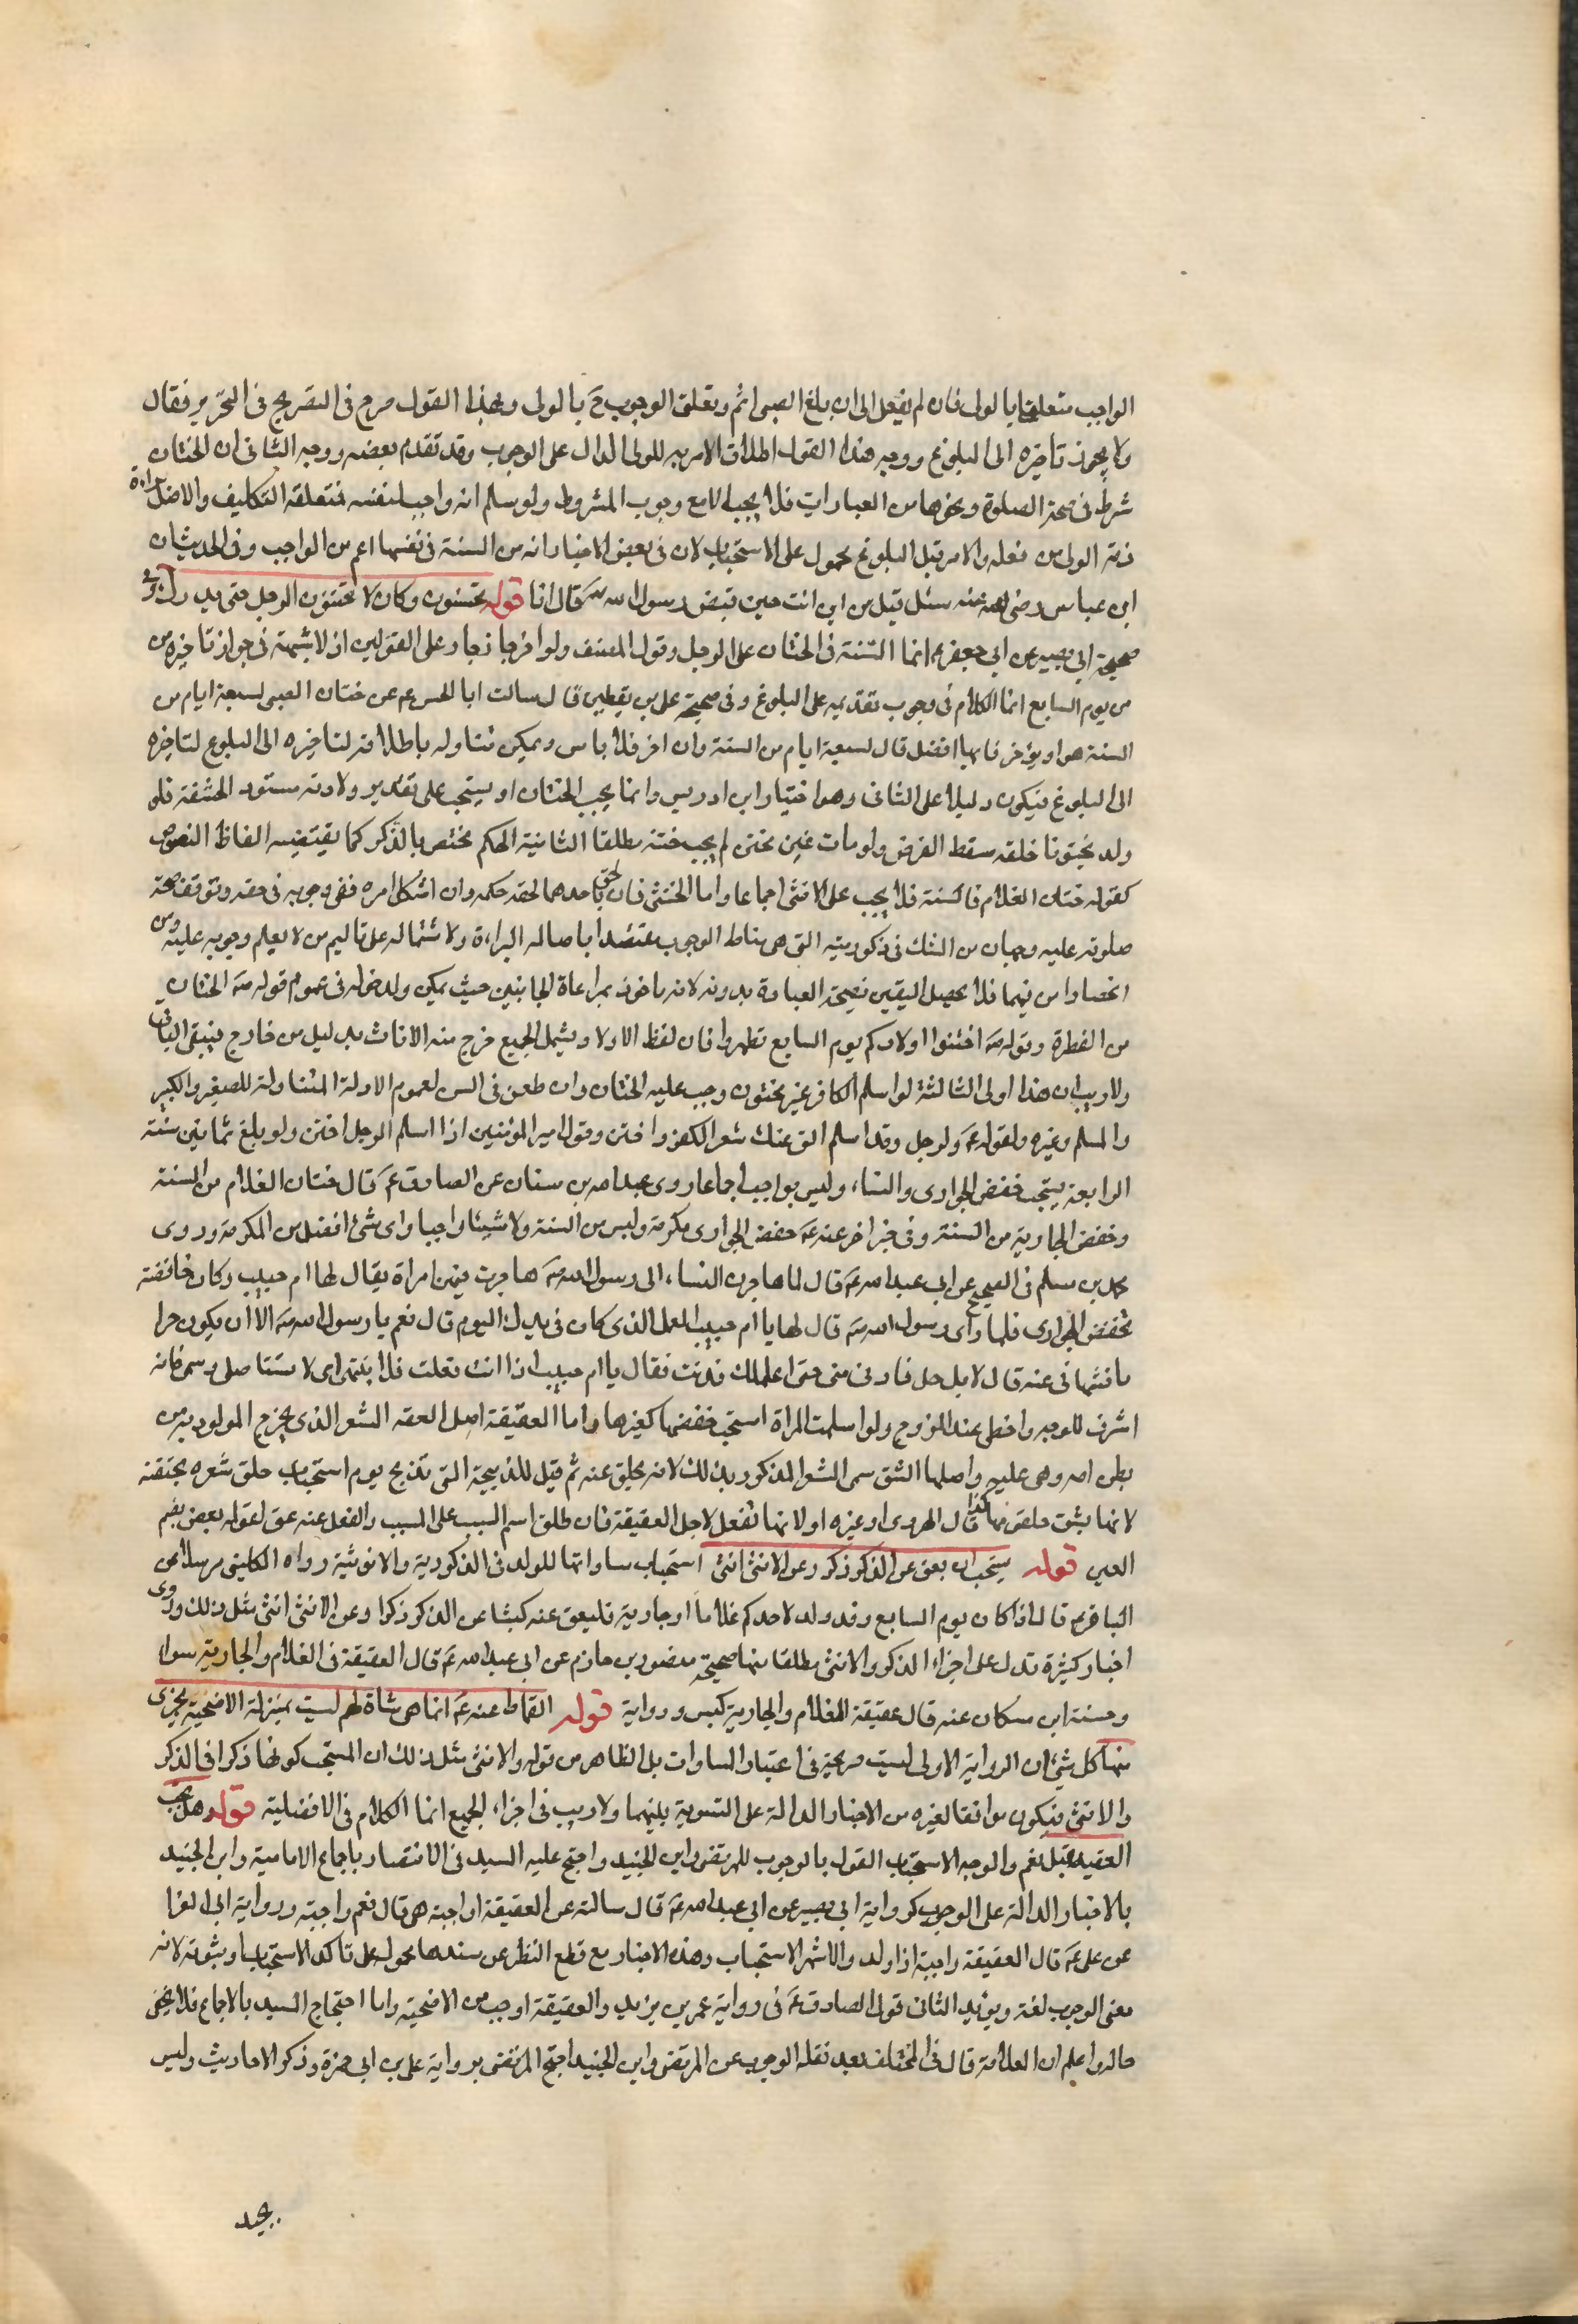 الواجب متعلقا بالولى فان لم يفعل الى ان بلغ الصبى اثم وتعلق الوجوب ح بالولى وبهذا القول صرح فى التصريح فى التحرير فقال
ولا يجوز تاخيره الى البلوغ ووجه هذا القول اطلاق الامر به للولى الدال على الوجوب وقد تقدم بعضه ووجه الثانى ان الختان
شرط فى صحة الصلوة ونحوها من العبادات فلا يجب الا مع وجوب المشروط ولو سلم انه واجب لنفسه فمتعلقه التكليف والاصل براءة
ذمة الولى من فعله والامر قبل البلوغ محمول على الاستحباب لان فى بعض الاخبار انه من السنة فى نفسها اعم من الواجب وفى الحديث ان
ابن عباس رضى الله عنه سئل قيل من اى انت حين قبض رسول الله ص قال انا قوله مختون وكان لا يختنون الرجل حتى يدرك وفى
صحيحة ابى بصير عن ابى جعفر ع انما السنة فى الختان على الرجل وقول المصنف ولو اخر جاز جار على القولين اذ لا شبهة فى جواز تاخيره من
من يوم السابع انما الكلام فى وجوب تقديمه على البلوغ وفى صحيحة على بن يقطين قال سالت ابا الحسن ع عن ختان الصبى لسبعة ايام من
السنة هو او يؤخر فايهما افضل قال لسبعة ايام من السنة وان اخر فلا باس ويمكن تناوله باطلاقه لتاخيره الى البلوغ لتاخيره
الى البلوغ فيكون دليلا على الثانى وهو اختيار ابن ادريس وانما يجب الختان او يستحب على تقدير ولادته مستور الحشفة فلو
ولد مختونا خلقه سقط الفرض ولو مات غير مختن لم يجب ختنه مطلقا الثانية الحكم مختص بالذكر كما يقتضيه الفاظ النصوص
كقوله ختان الغلام فالسنة فلا يجب على الانثى اجماعا واما الخنثى فان لحق باحدهما لحقه حكمه وان اشكل امره ففى وجوبه فى حقه وتوقف صحة
صلوته عليه وجهان من الشك فى ذكوريته التى هى مناط الوجوب معتضدا باصالة البراءة ولاشتماله على تاليم من لا يعلم وجوبه عليه ومن
انحصار امره فيهما فلا يحصل اليقين بصحة العبادة بدونه لانه ماخوذ بمراعاة الجانبين حيث يمكن ولدخوله فى عموم قوله ص الختان
من الفطرة وقوله ص اختنوا اولادكم يوم السابع تطهروا فان لفظ الاولاد يشمل الجميع خرج منه الاناث بدليل من خارج فيبقى الباقى
ولا ريب ان هذا اولى الثالثة لو اسلم الكافر غير مختون وجب عليه الختان وان طعن فى السن لعموم الادلة المتناولة للصغير والكبير
والمسلم وغيره ولقوله ع ولرجل وقد اسلم الق عنك شعر الكفر واختن وقول امير المؤمنين اذا اسلم الرجل اختن ولو بلغ ثمانين سنة
الرابعة يستحب خفض الجوارى والنساء وليس بواجب اجماعا روى عبد الله بن سنان عن الصادق ع قال ختان الغلام من السنة
وخفض الجارية من السنة وفى خبر اخر عنه ع خفض الجوارى مكرمة وليس من السنة ولا شيئا واجبا واى شئ افضل من المكرمة وروى
محمد بن مسلم فى الصحيح عن ابى عبد الله ع قال لما هاجرن النساء الى رسول الله ص هاجرت فيهن امراة يقال لها ام حبيب وكان خافضة
تخفض الجوارى فلما راى رسول الله ص قال لها يا ام حبيب العمل الذى كان فى يدك اليوم قال نعم يا رسول الله ص الا ان يكون حراما
فانتهانى عنه قال لا بل حل فادنى منى حتى اعلمك فدنت فقال يا ام حبيب اذا انت فعلت فلا تنهكى اى لا تستاصلى وسمى فانه
اشرف للوجه واحظى عند الزوج ولو اسلمت المراة استحب خفضها كغيرها واما العقيقة اصل العقه الشعر الذى يخرج المولود به من
بطن امه وهى عليه واصلها الشق سمى الشعر المذكور بذلك لانه يحلق عنه ثم قيل للذبيحة التى تذبح يوم استحباب حلق شعره بحقيقة
لانها يشق حلقومها كذا قال الهروى او غيره او لانها تفعل لاجل العقيقة فان طلق اسم السبب على المسبب والفعل عنه عق لقوله بعض بضم
العين قوله يستحب ان يعق عن الذكر ذكر وعن الانثى انثى استحباب مساواتها للولد فى الذكورية والانوثية رواه الكلينى مرسلا عن
الباقر ع قال اذا كان يوم السابع وقد ولد لاحدكم غلاما او جارية فليعق عنه كبشا عن الذكر ذكرا وعن الانثى انثى مثل ذلك وروى
اخبار كثيرة تدل على اجزاء الذكر والانثى مطلقا منها صحيحة منصور بن حازم عن ابى عبد الله ع قال العقيقة فى الغلام والجارية سواء
وحسنة ابن مسكان عنه قال عقيقة الغلام والجارية كبس ورواية قوله القماط عنه ع انما هى شاة لحم ليست بمنزلة الاضحية يجزى
منها كل شئ ان الرواية الاولى ليست صريحة فى اعتبار المساوات بل الظاهر من قوله والانثى مثل ذلك ان المستحب كونها ذكرا فى الذكر
والانثى فيكون موافقا لغيره من الاخبار الدالة على التسوية بينهما ولا ريب فى اجزاء الجميع انما الكلام فى الافضلية قوله هل يجب
العقيقة قيل نعم والوجه الاستحباب القول بالوجوب للمرتضى وابن الجنيد واحتج عليه السيد فى الانتصار باجماع الامامية وابن الجنيد
بالاخبار الدالة على الوجوب كرواية ابى بصير عن ابى عبد الله ع قال سالته عن العقيقة اواجبة هى قال نعم واجبة ورواية ابى الفرا
عن على ع قال العقيقة واجبة اذا ولد والاشهر الاستحباب وهذه الاخبار مع قطع النظر عن سندها محمول على تاكد الاستحباب او ثبوته لانه
معنى الوجوب لغة ويؤيد الثانى قول الصادق ع فى رواية عمر بن يزيد والعقيقة اوجب من الاضحية واما احتجاج السيد بالاجماع فلا يخفى
حاله واعلم ان العلامة قال فى المختلف بعد نقله الوجوب عن المرتضى وابن الجنيد احتج المرتضى برواية على بن ابى حمزة وذكر الاحاديث وليس
بجيد